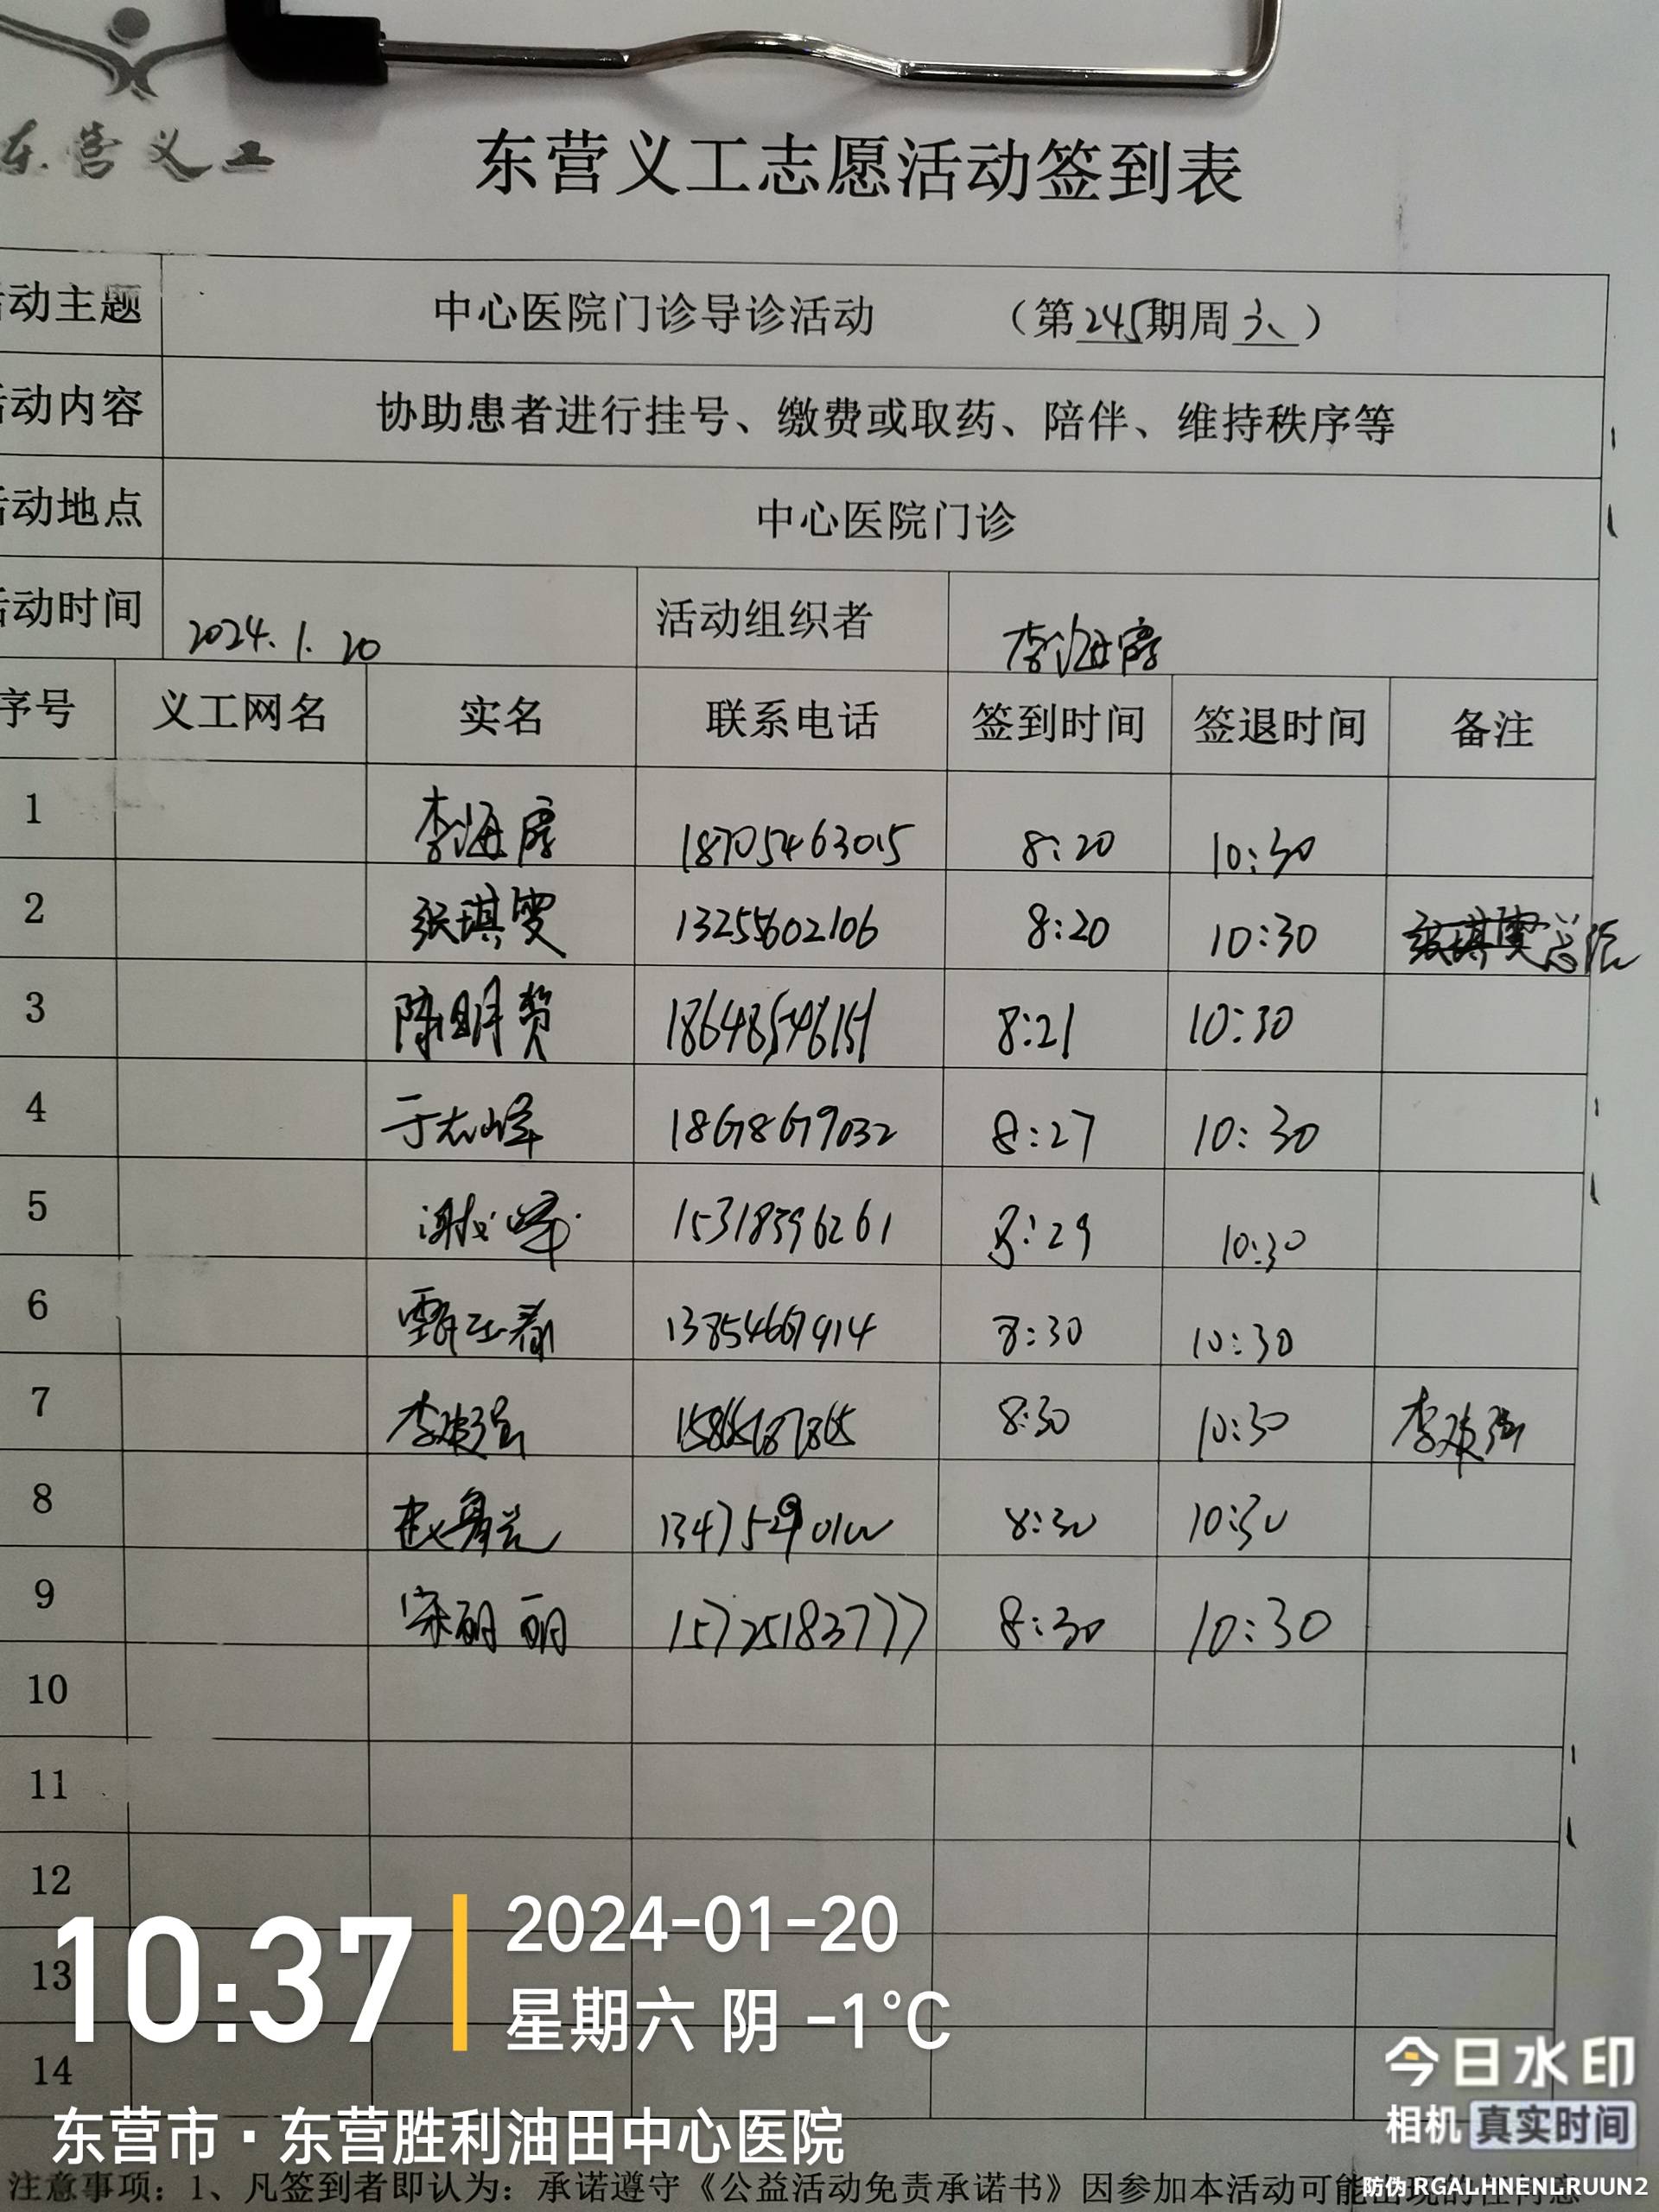 东营义工
东营义工志愿活动签到表
活动主题 中心医院门诊导诊活动 （第245期周六）
活动内容 协助患者进行挂号、缴费或取药、陪伴、维持秩序等
活动地点 中心医院门诊
活动时间 2024.1.20 活动组织者 李海房
序号 义工网名 实名 联系电话 签到时间 签退时间 备注
1 李海房 18705463015 8:20 10:30
2 张琪雯 13255602106 8:20 10:30 总结
3 陈明贤 18648546151 8:21 10:30
4 于志峰 18678679032 8:27 10:30
5 15318396261 8:29 10:30
6 13854667914 8:30 10:30
7 8:30 10:30
8 8:30 10:30
9 宋丽丽 15725183777 8:30 10:30
10
11
12
13
14
10:37 2024-01-20
星期六 阴 -1°C
东营市·东营胜利油田中心医院
今日水印
相机 真实时间
注意事项：1、凡签到者即认为：承诺遵守《公益活动免责承诺书》因参加本活动可能
防伪 RGALHNENLRUUN2